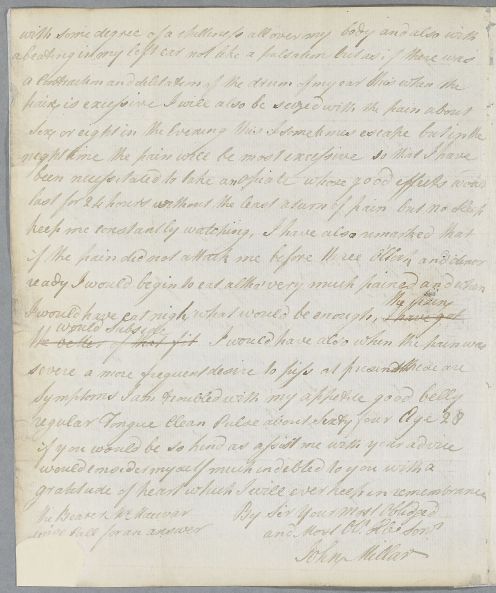 with some degree of a chillness all over my body and also with
a beating in my left ear not like a pulsation but as if there was
a Contraction and dilatation of the drum of my ear this when the
pain is excessive I will also be seized with the pain about
Sex or eight in the Evening this I sometimes escape but in the
night time the pain will be most excessive so that I have
been necessitated to take an opiate whose good effects would
last for 24 hours without the least aturn of pain but no sleep
keep me constantly watching, I have also remarked that
if the pain did not attack me before three oClock and dinner
ready I would begin to eat altho very much pained and when
I would have eat nigh what would be enough, the pains I have got
would Subside the better of that fit I would have also when the pain was
severe a more frequent desire to piss at present these are
Symptoms I am troubled with my appetite good belly
regular Tongue Clean Pulse about Sixty four Age 28
if you would be so kind as assist me with your advice
would consider myself much indebted to you with a
gratitude of heart which I will ever keep in remembrance
The Bearer Mr By Sir Your Most Obliged
will Call for an answer and Most Ob. Ser
John Millar